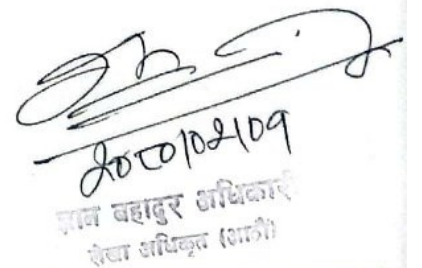 २०८०/०२/०९
ज्ञान बहादुर अधिकारी
लेखा अधिकृत (आठौं)